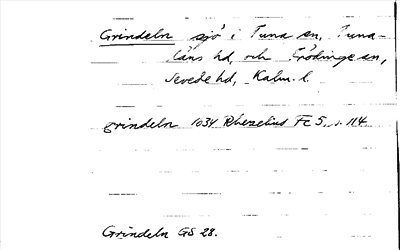 Grindeln sjö i Tuna sn, Tuna-
läns hd, och Frödinge sn,
Sevede hd, Kalm. l.
grindeln 1634 Rhezelius Fc 5, s. 114.
Grindeln GS 28.